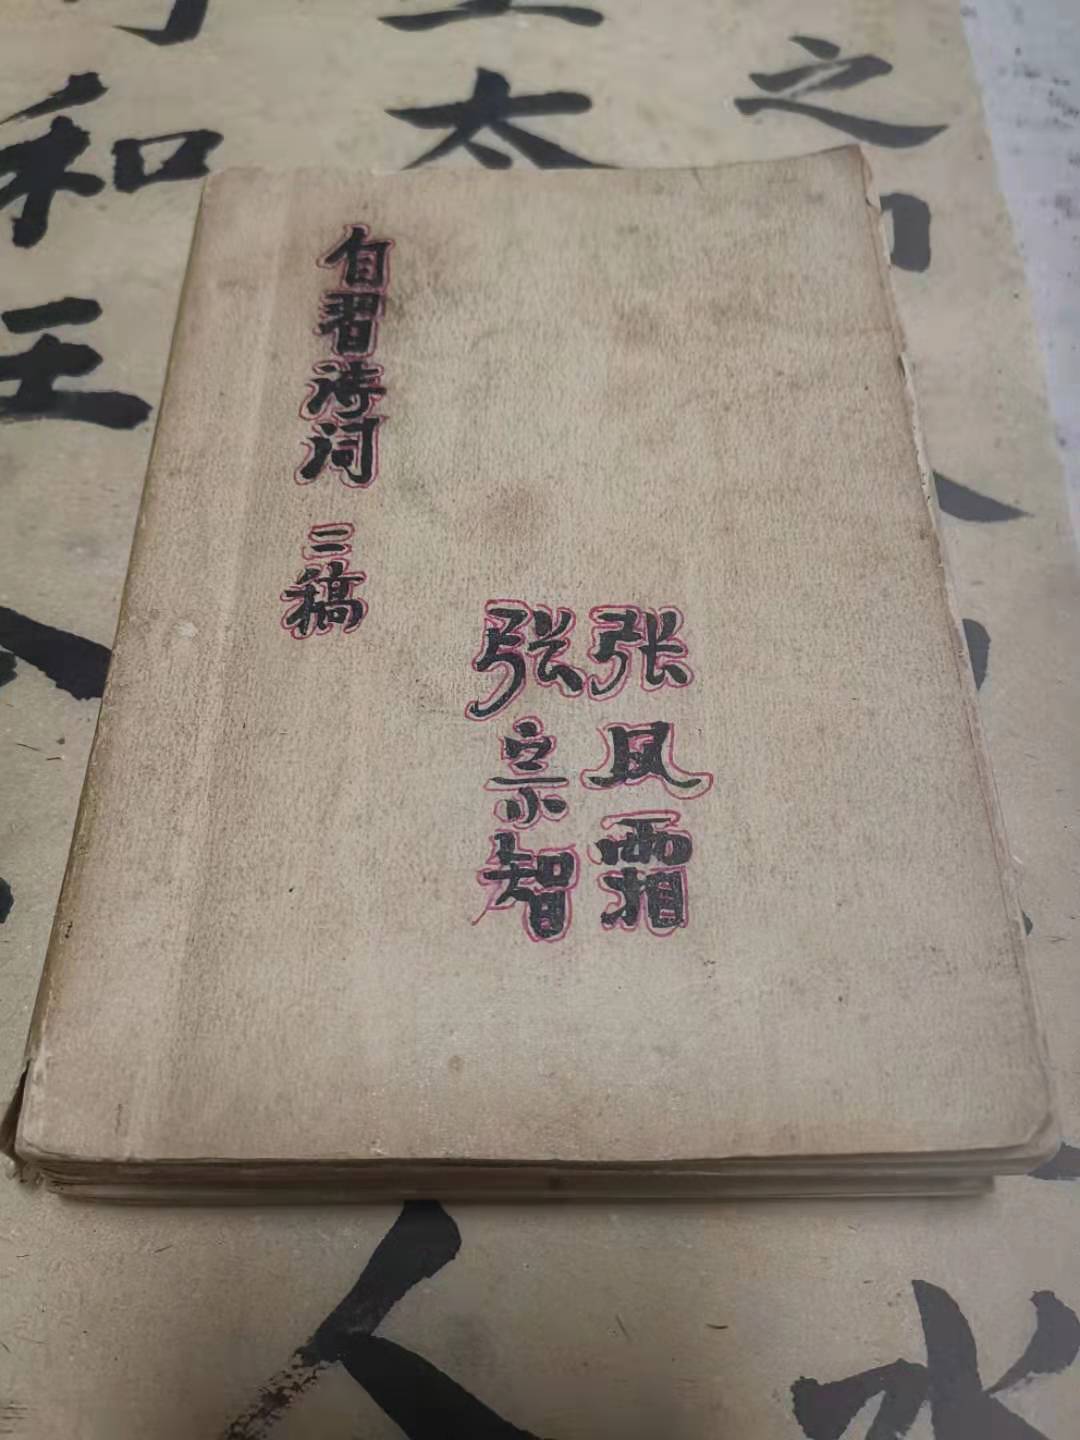 自習诗词 二稿
张风霜
张宗智
之
太
和王
人
水